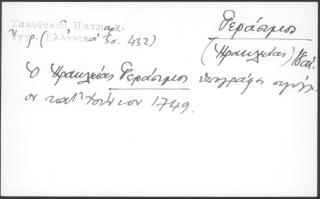 Ζακυθηνοῦ Πατριαρχ.
ἔγγρ. (Ἑλληνικά 3ος. 432)
Γεράσιμος
(Ἡρακλείας)
Ὁ Ἡρακλείας Γεράσιμος ὑπογράφει
κατ' Ἰούνιον 1749.